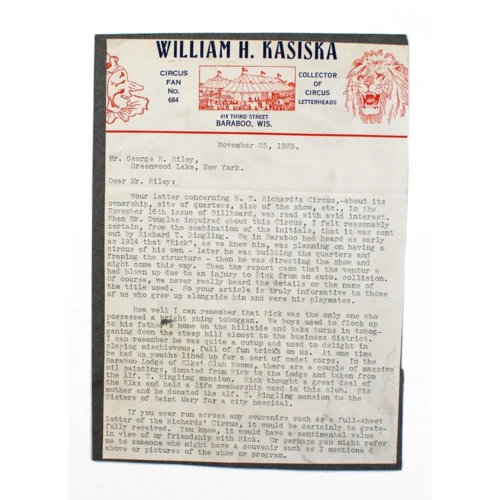 WILLIAM H. KASISKA
CIRCUS
FAN
No.
684
COLLECTOR
OF
CIRCUS
LETTERHEADS
419 THIRD STREET
BARABOO, WIS.
November 25, 1935.
Mr. George H. Riley,
Greenwood Lake, New York.
Dear Mr. Riley:
Your letter concerning H. T. Richard's Circus,-about its
ownership, sits of quarters, size of the show, etc., in the
November 16th issue of Billboard, was read with avid interest.
When Mr. Douglas inquired about this Circus, I felt reasonably
certain, from the combination of the initials, that it was sent
out by Richard T. Ringling. We in Baraboo had heard as early
as 1914 that "Rick", as we knew him, was planning on having a
circus of his own - later he was building the quarters and
framing the structure - then he was directing the show and
might come this way. Then the report came that the venture
had blown up due to an injury to Rick from an auto. collision.
Of course, we never really heard the details or the name of
the title used. So your article is truly informative to those
of us who grew up alongside him and were his playmates.
How well I can remember that Rick was the only one who
possessed a bright shiny toboggan. We boys used to flock up
to his father's home on the hillside and take turns in tobog-
ganing down the steep hill almost to the business district.
I can remember he was quite a cutup and used to delight in
playing mischievous, full of fun tricks on us. At one time
he had us youths lined up for a sort of cadet corps. In the
Baraboo Lodge of Elks' Club Rooms, there are a couple of massive
oil paintings, donated from Rick to the Lodge and taken from
the Alf. T. Ringling mansion. Rick thought a great deal of
the Elks and held a life membership card in this club. His
mother and he donated the Alf. T. Ringling mansion to the
Sisters of Saint Mary for a city hospital.
If you ever run across any souvenirs such as a full-sheet
letter of the Richards' Circus, it would be certainly be grate-
fully received. You know, it would have a sentimental value
in view of my friendship with Rick. Or perhaps you might refer
me to someone who might have a souvenir such as I mentioned
above or pictures of the show or program.